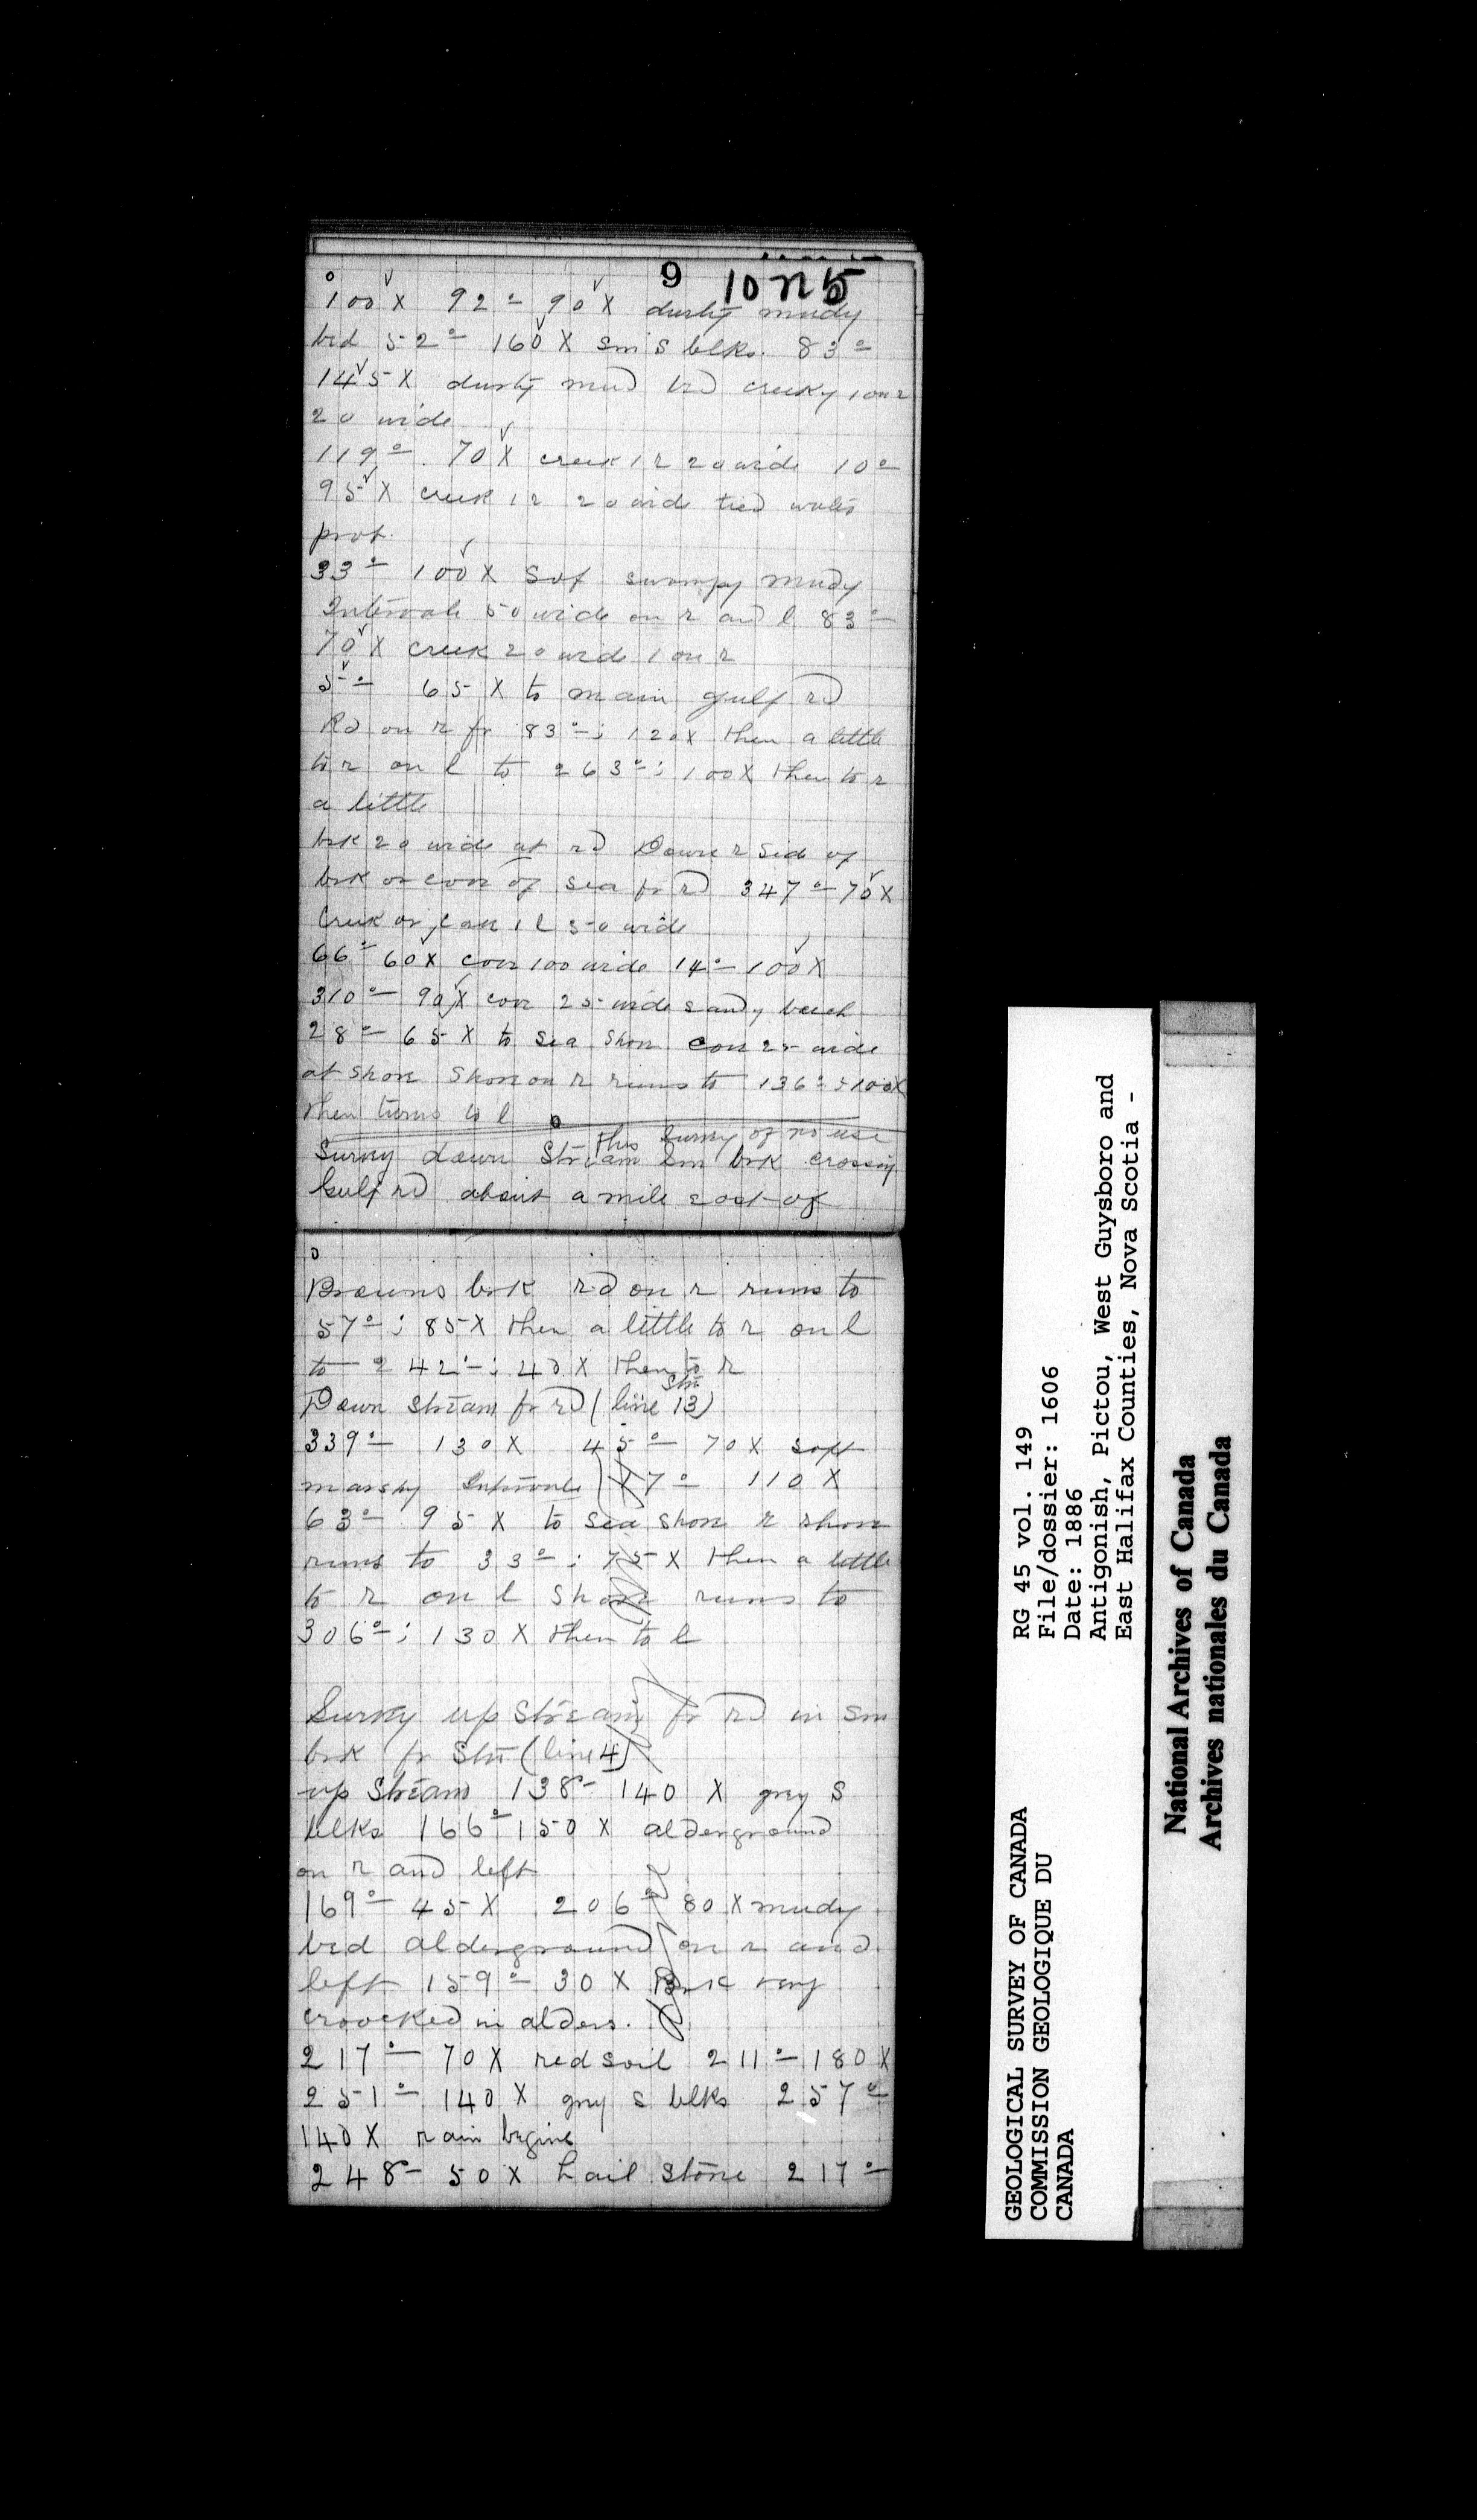 9 10 n 5
100 X 92° 90 X dusty mudy
bed 52° 160 X sm S blks. 83°
145 X dusty mud bd creek y 1 on r
20 wide
119° 70 X creek 1 r 20 wide 10°
95 X creek 1 r 20 wide tied
33° 100 X swampy mudy
Intervale 50 wide on r and l 83°
70 X creek 20 wide 1 on r
5° 65 X to main gulf rd
Rd on r fr 83°; 120 X then a little
to r on l to 263°; 100 X then to r
a little
brk 20 wide at rd Down r side of
brk or cove of sea fr rd 347° 70 X
Creek or 1 l 50 wide
66° 60 X cove 100 wide 14° 100 X
310° 90 X cove 25 wide sandy beach
28° 65 X to sea shore cove 25 wide
at shore Shore on r runs to 136°; 100 X
then turns to l
this Survey of no use
Survey down Stream Sm brk crossing
Gulf rd about a mile east of
Browns brk rd on r runs to
57°; 85 X then a little to r on l
to 242°; 40 X then to r
Down Stream fr rd (line 13)
339° 130 X 45° 70 X soft
marshy Intervale 17° 110 X
63° 95 X to sea shore r shore
runs to 33°; 75 X then a little
to r on l shore runs to
306°; 130 X then to l
Survey up stream fr rd in sm
brk fr Stn (line 4)
up Stream 138° 140 X grey S
blks 166° 150 X alderground
on r and left
169° 45 X 206° 80 X mudy
bed alderground on r and
left 159° 30 X Brk very
croocked in alders.
217° 70 X red soil 211° 180 X
251° 140 X grey S blks 257°
140 X rain begins
248° 50 X hail stone 217°
GEOLOGICAL SURVEY OF CANADA
COMMISSION GEOLOGIQUE DU
CANADA
RG 45 vol. 149
File/dossier: 1606
Date: 1886
Antigonish, Pictou, West Guysboro and
East Halifax Counties, Nova Scotia -
National Archives of Canada
Archives nationales du Canada